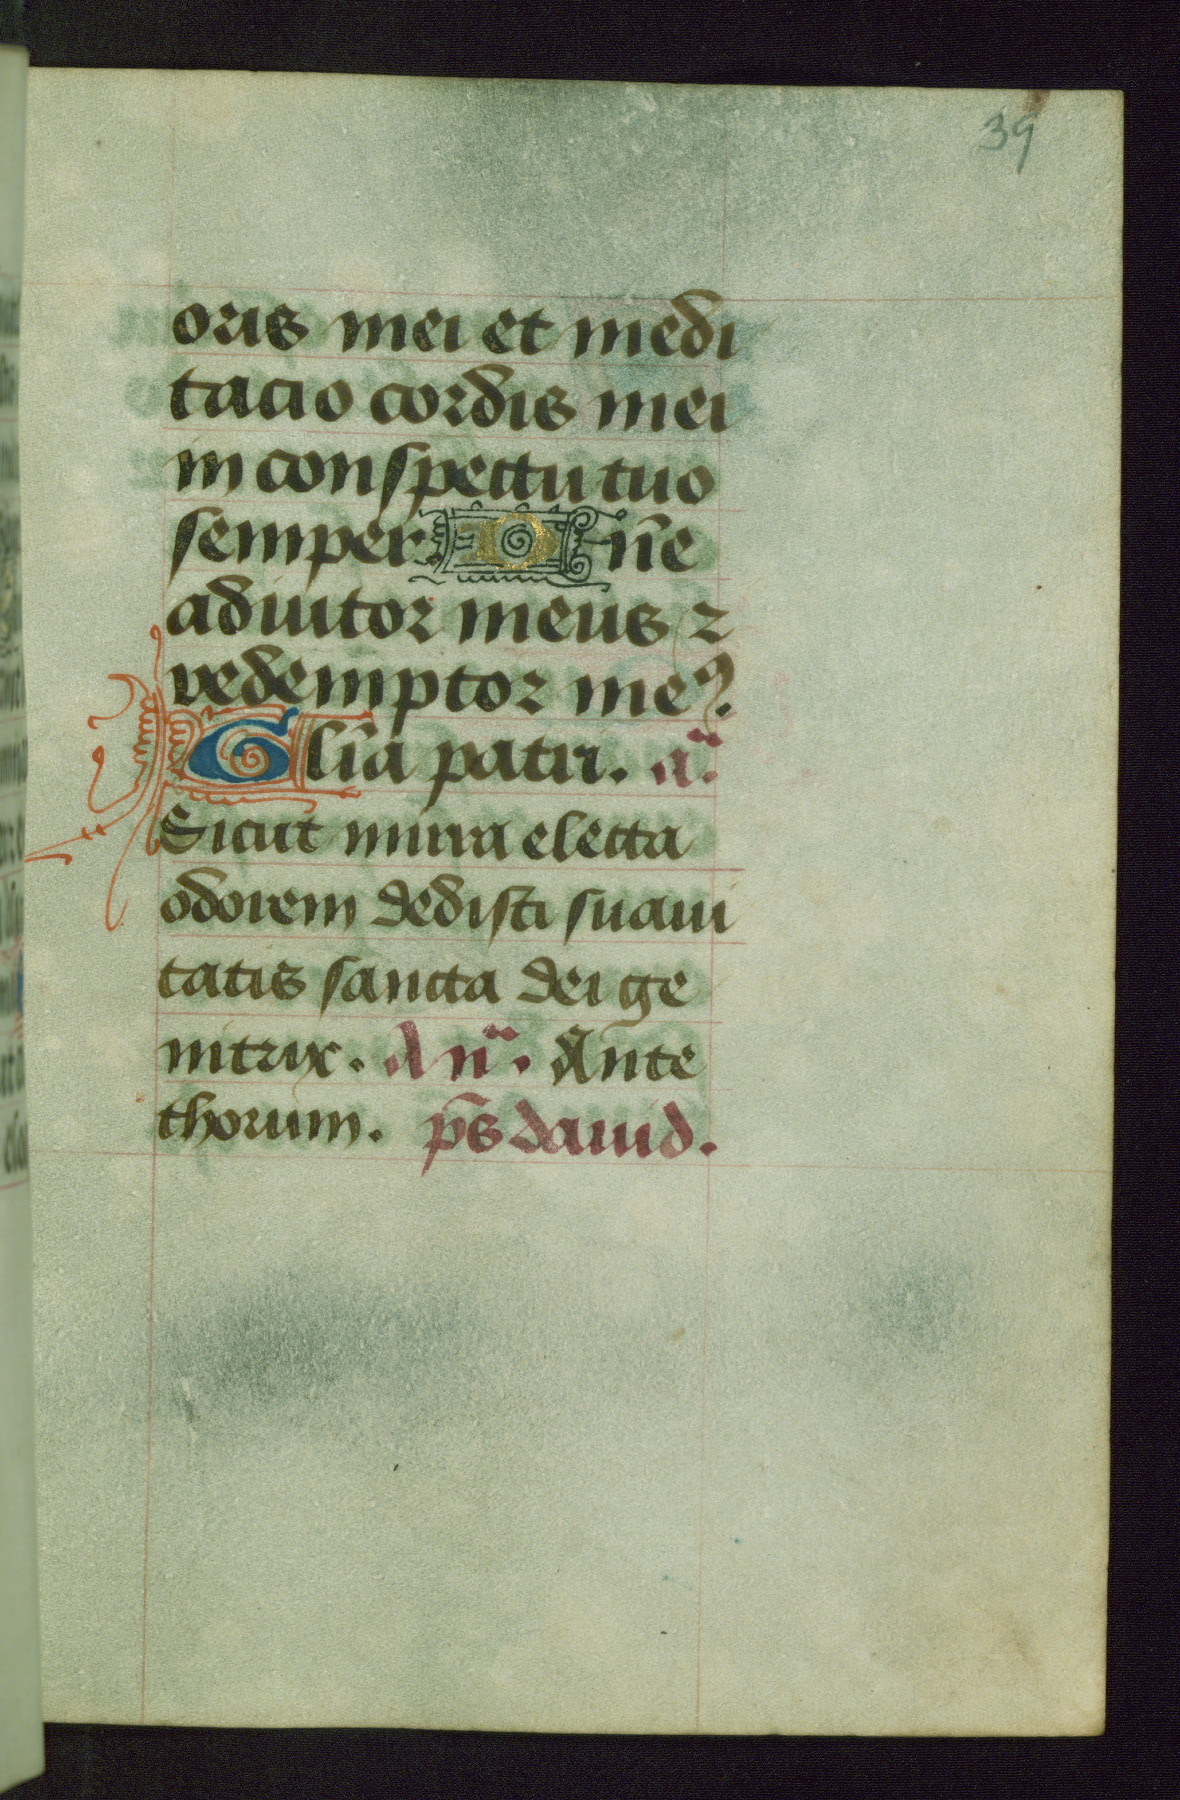 39
oris mei et medi
tacio cordis mei
in conspectu tuo
semper. Dn̄e
adiutor meus ⁊
redemptor meꝰ.
Gl̄ia patri. a͞.
Sicut mirra electa
odorem dedisti suaui
tatis sancta dei ge
nitrix. An͞. Ante
thorum. ps̄ dauid.